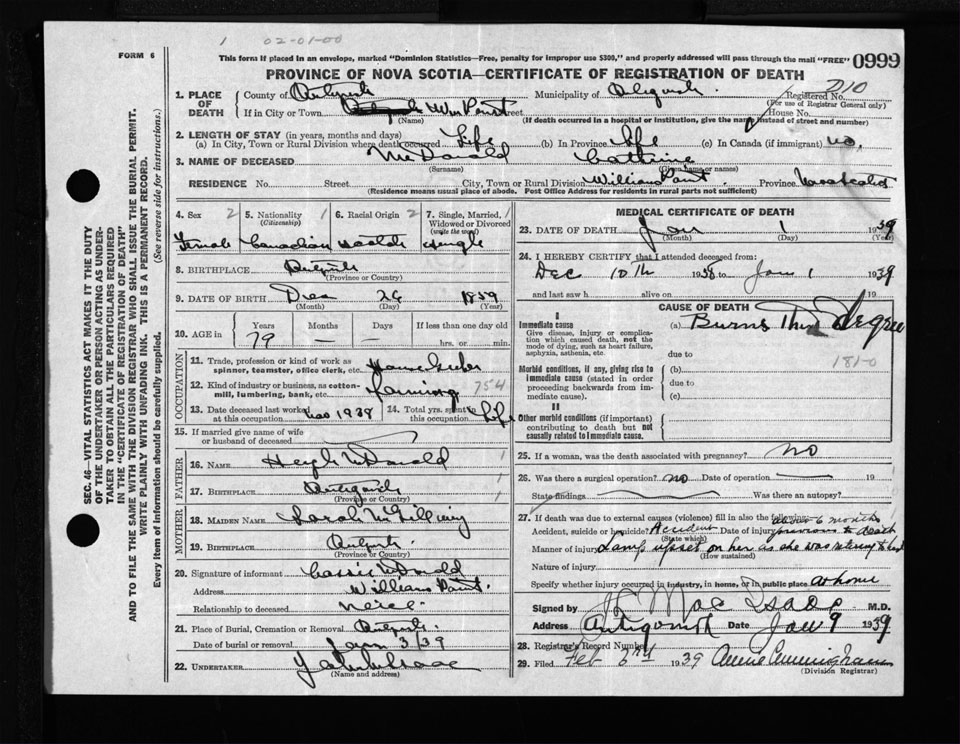 1 02-01-00
FORM 6
This form if placed in an envelope, marked "Dominion Statistics—Free, penalty for improper use $300," and properly addressed will pass through the mail "FREE" 0999
PROVINCE OF NOVA SCOTIA—CERTIFICATE OF REGISTRATION OF DEATH
SEC. 46—VITAL STATISTICS ACT MAKES IT THE DUTY
OF THE UNDERTAKER OR PERSON ACTING AS UNDER-
TAKER TO OBTAIN ALL THE PARTICULARS REQUIRED
IN THE "CERTIFICATE OF REGISTRATION OF DEATH"
AND TO FILE THE SAME WITH THE DIVISION REGISTRAR WHO SHALL ISSUE THE BURIAL PERMIT.
WRITE PLAINLY WITH UNFADING INK. THIS IS A PERMANENT RECORD.
Every item of information should be carefully supplied. (See reverse side for instructions.)
1. PLACE OF DEATH
County of Municipality of Registered No. D10
(For use of Registrar General only)
If in City or Town Wm Point Street House No.
(Name) (If death occurred in a hospital or institution, give the name instead of street and number)
2. LENGTH OF STAY (in years, months and days)
(a) In City, Town or Rural Division where death occurred Life (b) In Province Life (c) In Canada (if immigrant) no.
3. NAME OF DECEASED McDonald Cathrine
(Surname) (Given name or names)
RESIDENCE No. Street City, Town or Rural Division Williams Point Province Nova Scotia
(Residence means usual place of abode. Post Office Address for residents in rural parts not sufficient)
4. Sex 2
Female
5. Nationality 1
(Citizenship)
Canadian
6. Racial Origin 2
7. Single, Married, 1
Widowed or Divorced
(write the word)
Single
8. BIRTHPLACE
(Province or Country)
9. DATE OF BIRTH 26 1859
(Month) (Day) (Year)
10. AGE in Years Months Days If less than one day old
79 — — hrs. or min.
OCCUPATION
11. Trade, profession or kind of work as
spinner, teamster, office clerk, etc. House keeper
12. Kind of industry or business, as cotton-
mill, lumbering, bank, etc. farming 754
13. Date deceased last worked
at this occupation 1938
14. Total yrs. spent in
this occupation Life
15. If married give name of wife
or husband of deceased
FATHER
16. NAME Hugh McDonald 1
17. BIRTHPLACE Antigonish 1
(Province or Country)
MOTHER
18. MAIDEN NAME Sarah McGillivray
19. BIRTHPLACE
(Province or Country)
20. Signature of informant Cassie McDonald
Address Williams Point
Relationship to deceased neice
21. Place of Burial, Cremation or Removal
Date of burial or removal Jan 3/39
22. UNDERTAKER
(Name and address)
MEDICAL CERTIFICATE OF DEATH
23. DATE OF DEATH Jan 1 1939
(Month) (Day) (Year)
24. I HEREBY CERTIFY that I attended deceased from:
Dec 10th 1938 to Jan 1 1939
and last saw h alive on 19
CAUSE OF DEATH
I
Immediate cause
Give disease, injury or complica-
tion which caused death, not the
mode of dying, such as heart failure,
asphyxia, asthenia, etc.
(a) Burns Third Degree
due to
Morbid conditions, if any, giving rise to
immediate cause (stated in order
proceeding backwards from im-
mediate cause).
(b) 181-0
due to
(c)
II
Other morbid conditions (if important)
contributing to death but not
causally related to immediate cause.
25. If a woman, was the death associated with pregnancy? no
26. Was there a surgical operation? no Date of operation
State findings Was there an autopsy?
27. If death was due to external causes (violence) fill in also the following: about 6 months
Accident, suicide or homicide? Accident Date of injury previous to death
(State which)
Manner of injury Lamp upset on her as she was
(How sustained)
Nature of injury
Specify whether injury occurred in industry, in home, or in public place at home
Signed by MacIsaac M.D.
Address Antigonish Date Jan 9 1939
28. Registrar's Record Number
29. Filed Feb 2nd 1939 Annie Cunningham
(Division Registrar)